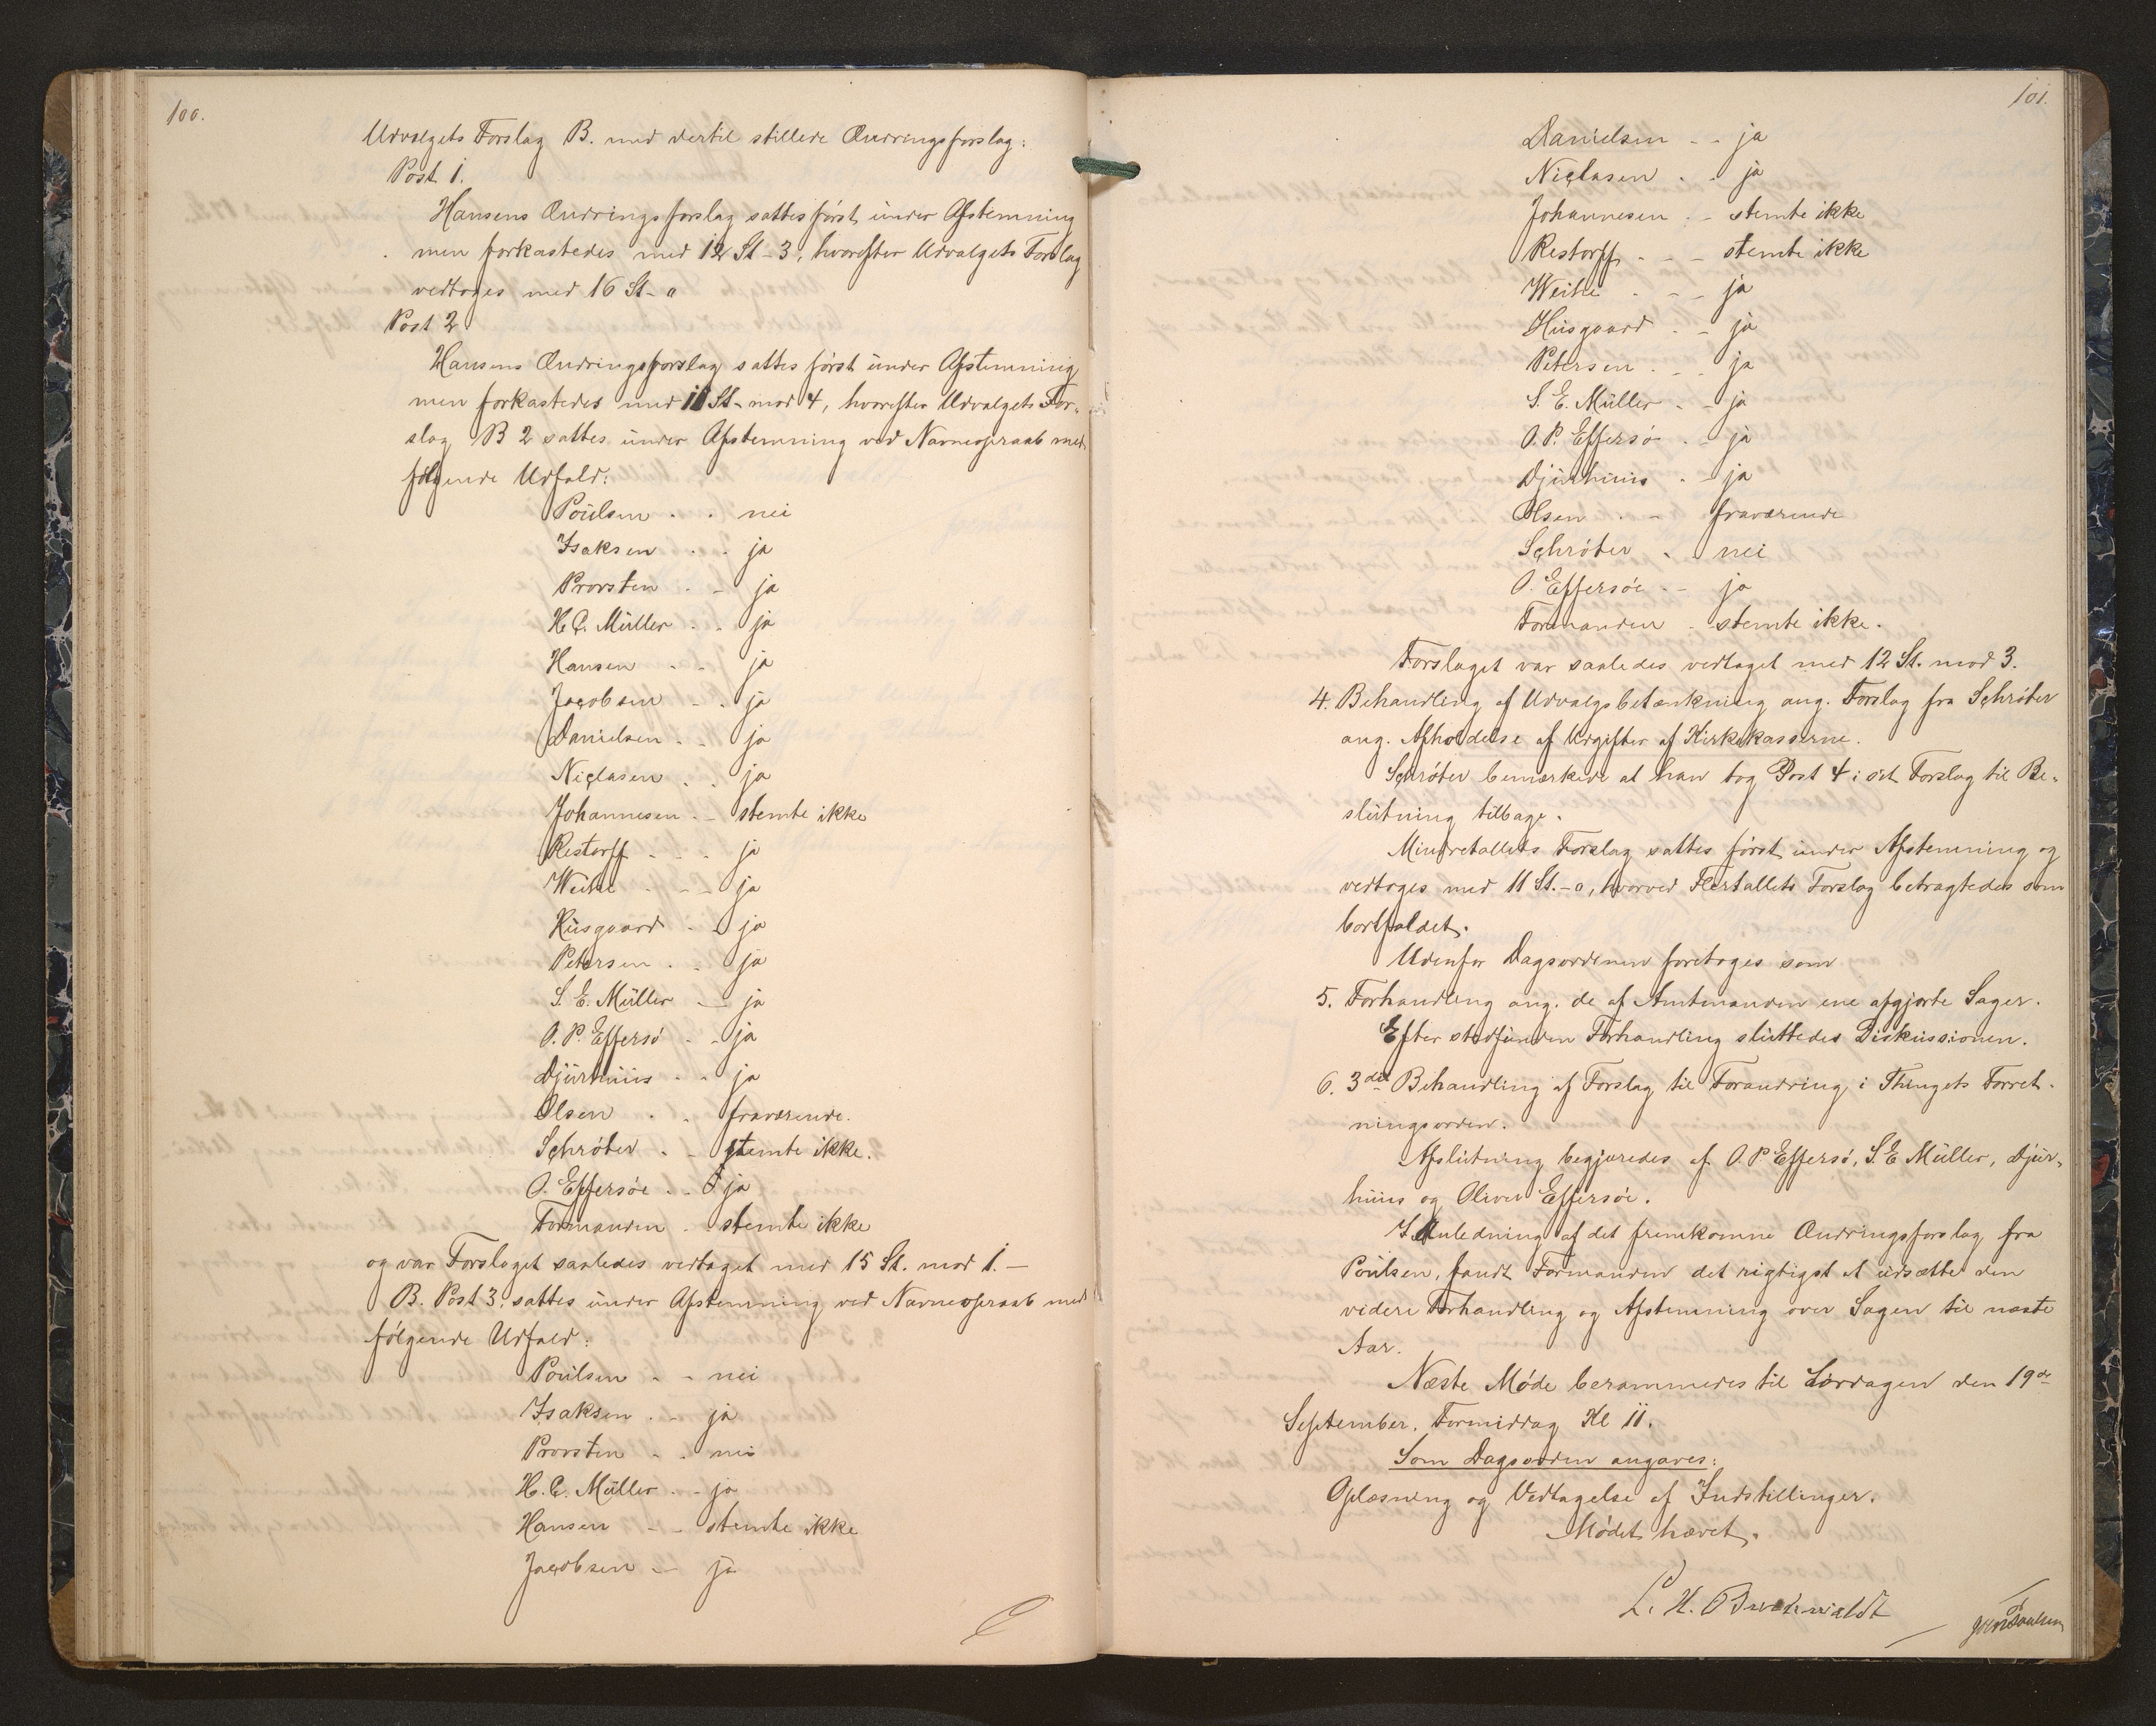 100.
Udvalgets Forslag B. med dertil stillede Ændringsforslag:
Post 1.
Hansens Ændringsforslag sattes først under Afstemning
men forkastedes med 12 St - 3, hvorefter Udvalgets Forslag
vedtoges med 16 St - 0
Post 2
Hansens Ændringsforslag sattes først under Afstemning
men forkastedes med 11 St. mod 4, hvorefter Udvalgets For-
slag B 2 sattes under Afstemning ved Navneopraab med
følgende Udfald:
Poulsen . . nei
Isaksen . . ja
Provsten . - ja
H.C. Müller . . ja
Hansen - - ja
Jacobsen - . ja
Danielsen . . ja
Niclasen . . ja
Johannesen . - stemte ikke
Restorff - - . ja
Weihe - - - ja
Husgaard . - ja
Petersen . . ja
S. E. Müller - ja
O. P. Effersø - - ja
Djurhuus - - ja
Olsen . . fraværende.
Schrøter . - stemte ikke.
O. Effersøe . . ja
Formanden . stemte ikke
og var Forslaget saaledes vedtaget med 15 St. mod 1. -
B. Post 3, sattes under Afstemning ved Navneopraab med
følgende Udfald:
Poulsen - - nei
Isaksen . - ja
Provsten - . nei
H. C. Müller . - ja
Hansen - - stemte ikke
Jacobsen - - ja
101.
Danielsen - - ja
Niclasen . . ja
Johannesen . - stemte ikke
Restorff . - - stemte ikke
Weihe . - - ja
Husgaard . - ja
Petersen . . . ja
S. E. Müller - - ja
O. P. Effersø . - ja
Djurhuus . - ja
Olsen . - fraværende
Schrøter . nei
O. Effersøe . - ja
Formanden - stemte ikke.
Forslaget var saaledes vedtaget med 12 St. mod 3.
4. Behandling af Udvalgsbetænkning ang. Forslag fra Schrøter
ang. Afholdelse af Udgifter af Kirkekasserne.
Schrøter bemærkede at han tog Post 4 i sit Forslag til Be-
slutning tilbage.
Mindretallets Forslag sattes først under Afstemning og
vedtoges med 11 St. - 0, hvorved Flertallets Forslag betragtedes som
bortfaldet.
Udenfor Dagsordenen foretoges som
5. Forhandling ang. de af Amtmanden ene afgjorte Sager.
Efter stedfunden Forhandling sluttedes Diskussionen.
6. 3die Behandling af Forslag til Forandring i Thingets Forret-
ningsorden.
Afslutning begjæredes af O. P Effersø, S. E Müller, Djur-
huus og Oliver Effersøe.
I Anledning af det fremkomne Ændringsforslag fra
Poulsen, fandt Formanden det rigtigst at udsætte den
videre Forhandling og Afstemning over Sagen til næste
Aar.
Næste Møde berammedes til Lørdagen den 19de
September, Formiddag Kl 11.
Som Dagsorden angaves:
Oplæsning og Vedtagelse af Indstillinger.
Mødet hævet.
L. H.